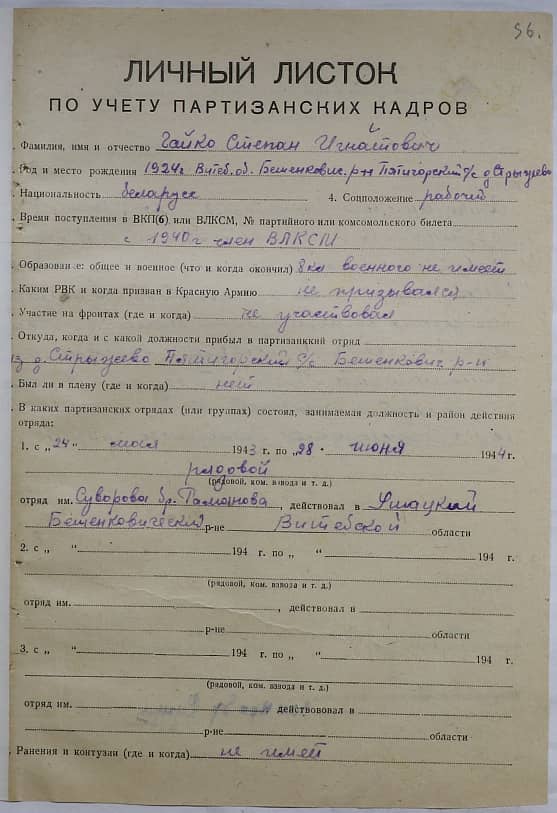 56.
ЛИЧНЫЙ ЛИСТОК
ПО УЧЕТУ ПАРТИЗАНСКИХ КАДРОВ
Фамилия, имя и отчество Чайко Степан Игнатович
Род и место рождения 1924г Витеб. об. Бешенкович. р-н Пятигорский с/с д Стрыжево
Национальность беларусс 4. Соцположение рабочий
. Время поступления в ВКП(б) или ВЛКСМ, № партийного или комсомольского билета
с 1940г член ВЛКСМ
. Образование: общее и военное (что и когда окончил) 8 кл военного не имеет
. Каким РВК и когда призван в Красную Армию не призывался
. Участие на фронтах (где и когда) не участвовал
. Откуда, когда и с какой должности прибыл в партизанкий отряд
из д. Стрыжево Пятигорский с/с Бешенкович р-н
. Был ли в плену (где и когда) нет
. В каких партизанских отрядах (или группах) состоял, занимаемая должность и район действия
отряда:
1. с „24“ мая 1943 г. по „28. июня 1944 г.
рядовой
(рядовой, ком. взвода и т. д.)
отряд им. Суворова бр. Романова, действовал в Ушацкий
Бешенковический р-не Витебской области
2. с „ “ 194 г. по „ “ 194 г.
(рядовой, ком. взвода и т. д.)
отряд им. , действовал в
р-не области
3. с „ “ 194 г. по „ “ 194 г.
(рядовой, ком. взвода и т. д.)
отряд им. действововал в
р-не области
. Ранения и контузии (где и когда) не имеет